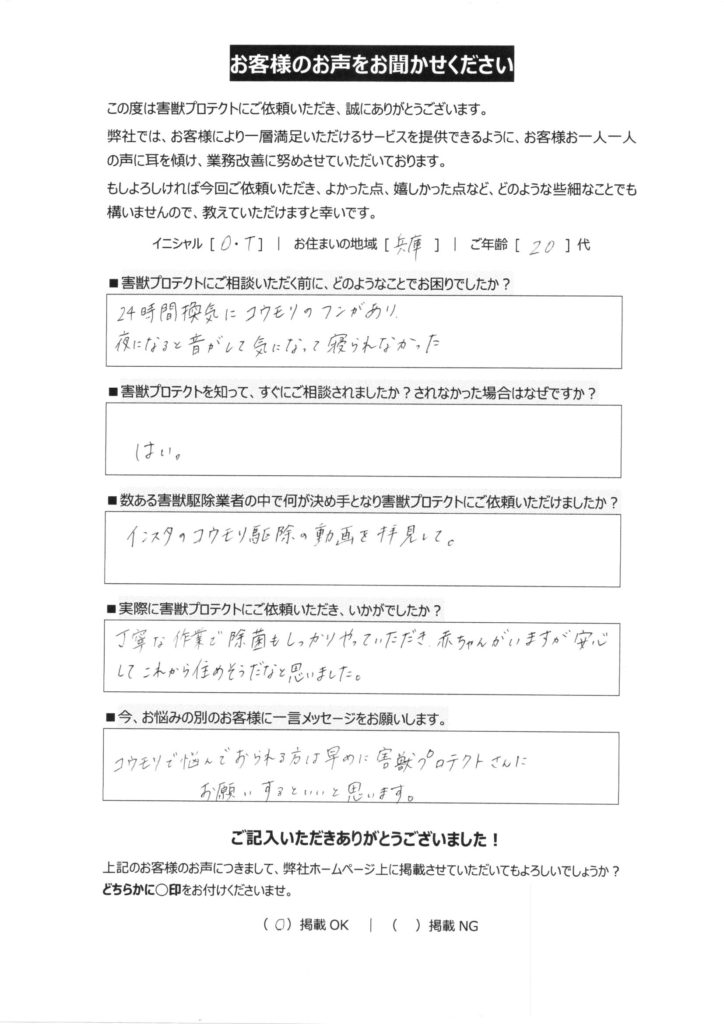 お客様のお声をお聞かせください
この度は害獣プロテクトにご依頼いただき、誠にありがとうございます。
弊社では、お客様により一層満足いただけるサービスを提供できるように、お客様お一人一人
の声に耳を傾け、業務改善に努めさせていただいております。
もしよろしければ今回ご依頼いただき、よかった点、嬉しかった点など、どのような些細なことでも
構いませんので、教えていただけますと幸いです。
イニシャル [ O・T ] | お住まいの地域 [ 兵庫 ] | ご年齢 [ 20 ] 代
■害獣プロテクトにご相談いただく前に、どのようなことでお困りでしたか？
24時間換気にコウモリのフンがあり、
夜になると音がして気になって寝られなかった
■害獣プロテクトを知って、すぐにご相談されましたか？されなかった場合はなぜですか？
はい。
■数ある害獣駆除業者の中で何が決め手となり害獣プロテクトにご依頼いただけましたか？
インスタのコウモリ駆除の動画を拝見して。
■実際に害獣プロテクトにご依頼いただき、いかがでしたか？
丁寧な作業で除菌もしっかりやっていただき、赤ちゃんがいますが安心
してこれから住めそうだなと思いました。
■今、お悩みの別のお客様に一言メッセージをお願いします。
コウモリで悩んでおられる方は早めに害獣プロテクトさんに
お願いするといいと思います。
ご記入いただきありがとうございました！
上記のお客様のお声につきまして、弊社ホームページ上に掲載させていただいてもよろしいでしょうか？
どちらかに〇印をお付けくださいませ。
(〇) 掲載 OK | ( ) 掲載 NG